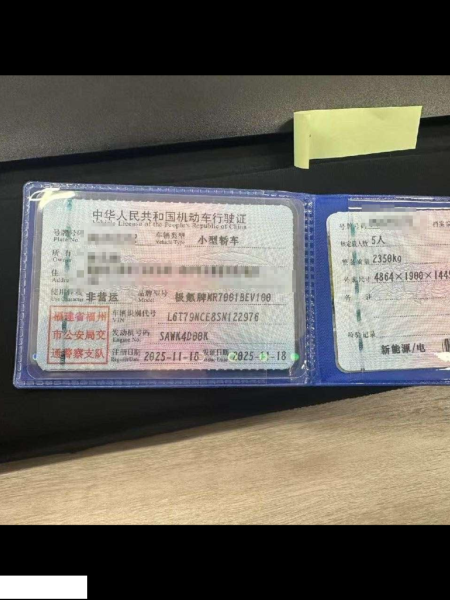 中华人民共和国机动车行驶证
Vehicle License of the People's Republic of China
号牌号码 车辆类型 小型轿车
Plate No. Vehicle Type
所有人
Owner
住
使用性质 非营运 品牌型号 极氪牌MR7001BEV100
Use Character Model
福建省福州
市公安局交
通警察支队
车辆识别代号 L6TT9NCE8SN122976
VIN
发动机号码 SAWK4D00K
Engine No.
注册日期 2025-11-18 发证日期 2025-11-18
Register Date Issue Date
号牌号码
核定载人数 5人
整备质量 2350kg
外廓尺寸 4864×1900×144
检验记录
新能源/电